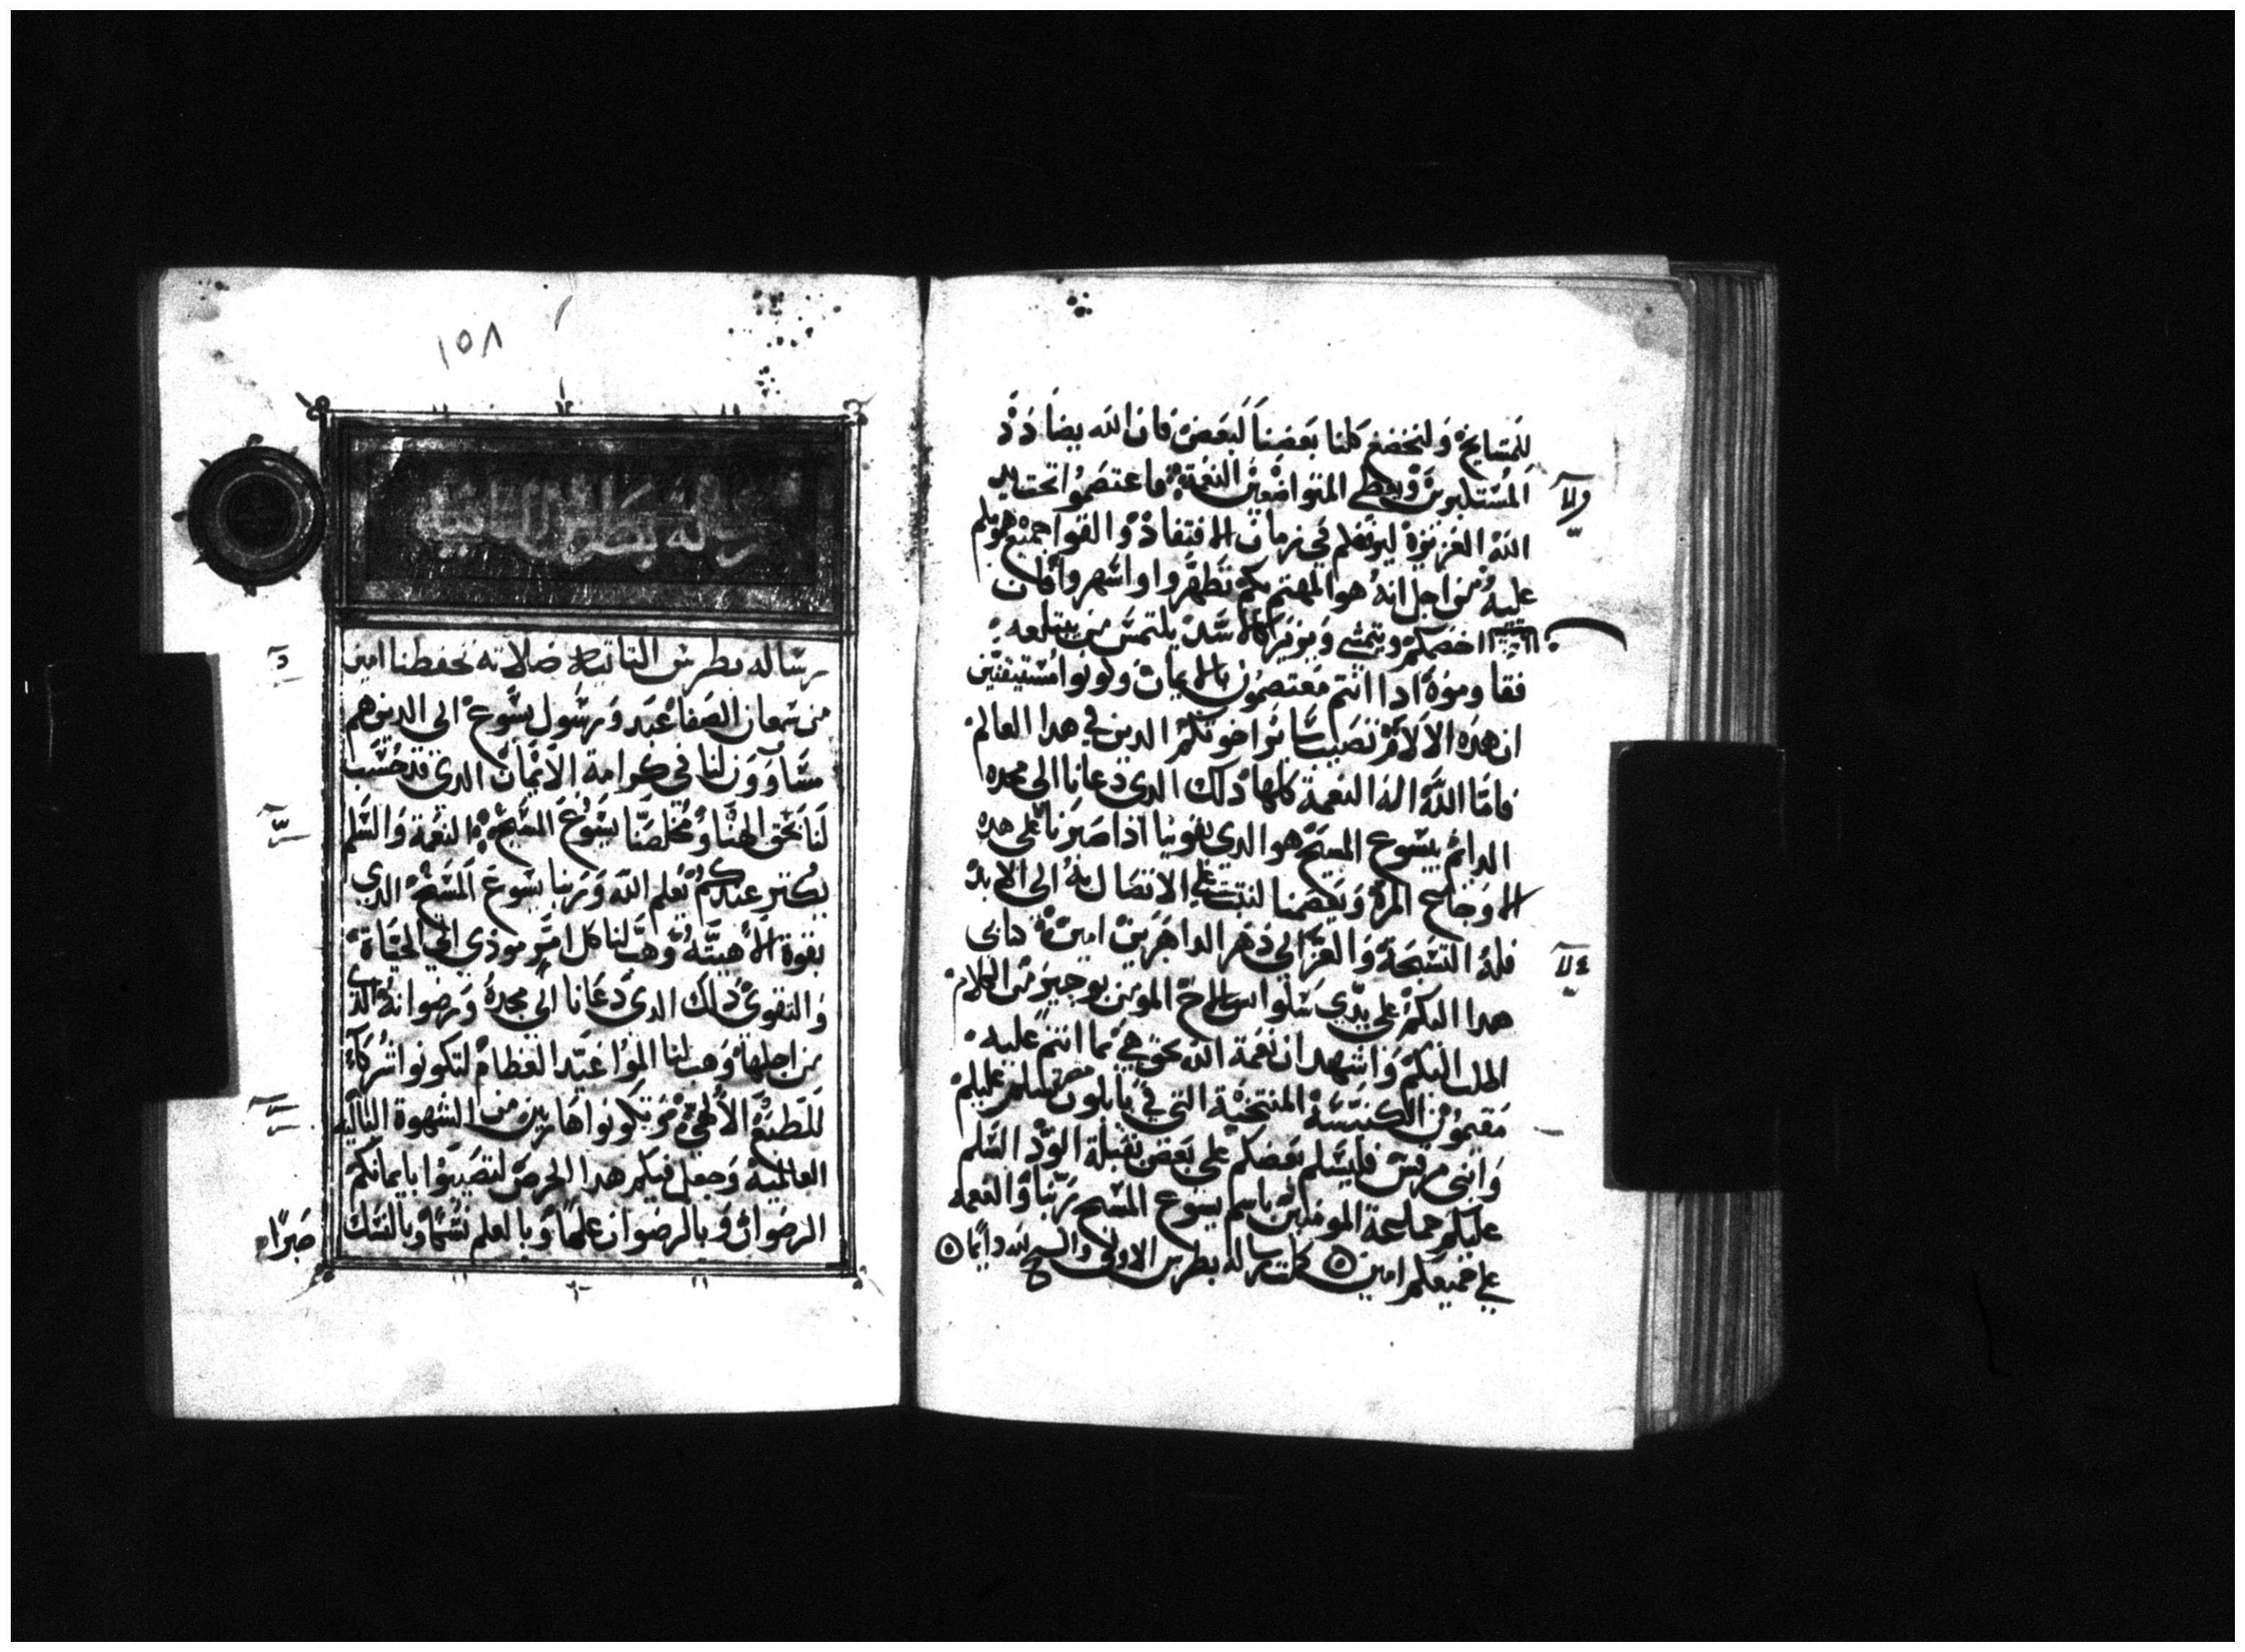 للمشايخ ولنخضع كلنا بعضنا لبعض فان الله يضادد
المستكبرين ويعطي المتواضعين النعمة فاعتصموا تحت يد
الله العزيزة ليرفعكم في زمان الافتقاد والقوا جميع همومكم
عليه من اجل انه هو المهتم بكم تطهروا واسهروا فان
اخصمكم ويتمشى ويزير كالاسد يلتمس من يبتلعه
فقاوموه ادا انتم معتصمون بالايمان وكونوا مستيقنين
ان هذه الالام تصيب ساير اخوتكم الدين في هدا العالم
فاما الله اله النعمة كلها دلك الدي دعانا الى مجده
الدايم بيسوع المسيح هو الدي يقوينا اذا صبرنا على هده
الاوجاع المرة ويعصمنا لنتبت على الاتصال به الى الابد
فله التسبحة والعز الى دهر الداهرين امين كتابي
هدا اليكم على يدي سلوانس الاخ المومن بوجيز من الكلام
اطلب اليكم واشهد ان نعمة الله بحق هي بما انتم عليه
مقيمون الكنيسة المنتخبة التي في بابلون مصر تسلم عليكم
وابني مرقس فليسلم بعضكم على بعض بقبلة الود السلم
عليكم جماعة المومنين باسم يسوع المسيح ربنا والنعمه
على جميعكم امين كملت رساله بطرس الاولى والسبح لله دايما
١٥٨
رساله بطرس الثانية
رساله بطرس التانيه صلاته تحفظنا امين
من سمعان الصفا عبد ورسول يسوع الى الدين هم
مساوون لنا في كرامة الايمان الدي قد حسب
لنا بحق الهنا ومخلصنا يسوع المسيح النعمة والسلم
يكتر عندكم بعلم الله وربنا يسوع المسيح الدي
بقوة الاهيته وهب لنا كل امر مودي الى الحياة
والتقوى دلك الدي دعانا الى مجده ورضوانه الدي
من اجلها وهب لنا المواعيد العظام لتكونوا شركاء
للطبيعة الالهية وتكونوا هاربين من الشهوة الباليه
العالمية وجعل فيكم هدا الحرص لتصيبوا بايمانكم
الرضوان وبالرضوان علما وبالعلم نسكا وبالنسك
صبرا